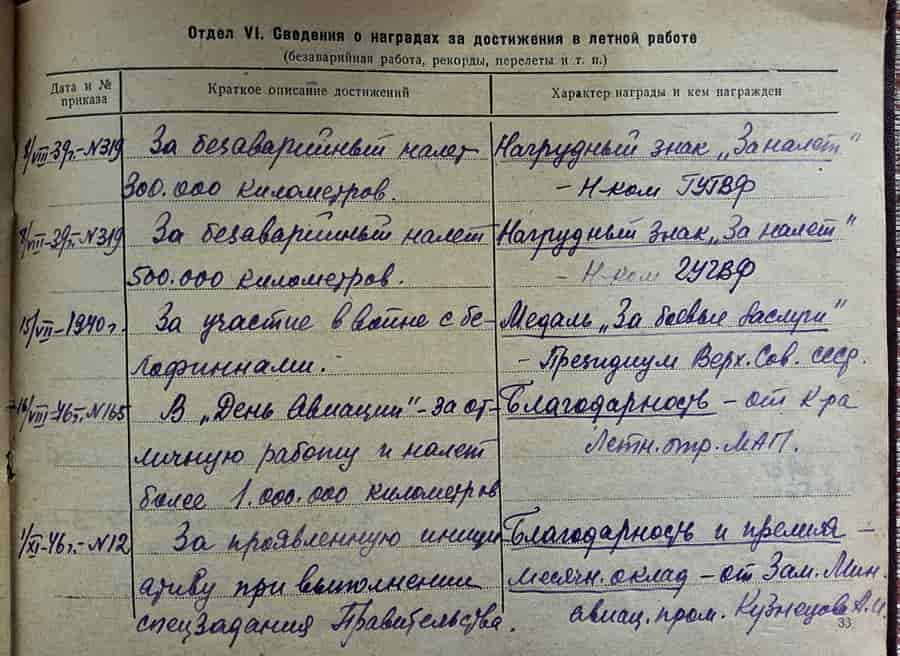 Отдел VI. Сведения о наградах за достижения в летной работе
(безаварийная работа, рекорды, перелеты и т. п.)
Дата и №
приказа
Краткое описание достижений
Характер награды и кем награжден
8/VIII-39г.-N319 За безаварийный налет Нагрудный знак „За налет"
300.000 километров. - Н-ком ГУГВФ
8/VIII-39г. N319 За безаварийный налет Нагрудный знак „За налет"
500.000 километров. - Н-ком ГУГВФ
15/VII-1940г. За участие в войне с бе- Медаль „За боевые заслуги"
лофиннами. - Президиум Верх. Сов. СССР.
16/VIII-46г. N165 В „День Авиации" - за от- Благодарность - от К-ра
личную работу и налет Летн. отр. МАП.
более 1.000.000 километров
1/XI-46г.-N12 За проявленную иници Благодарность и премия -
ативу при выполнении месячн. оклад - от Зам. Мин.
спецзадания Правительства. авиац. пром. Кузнецова А.И.
33